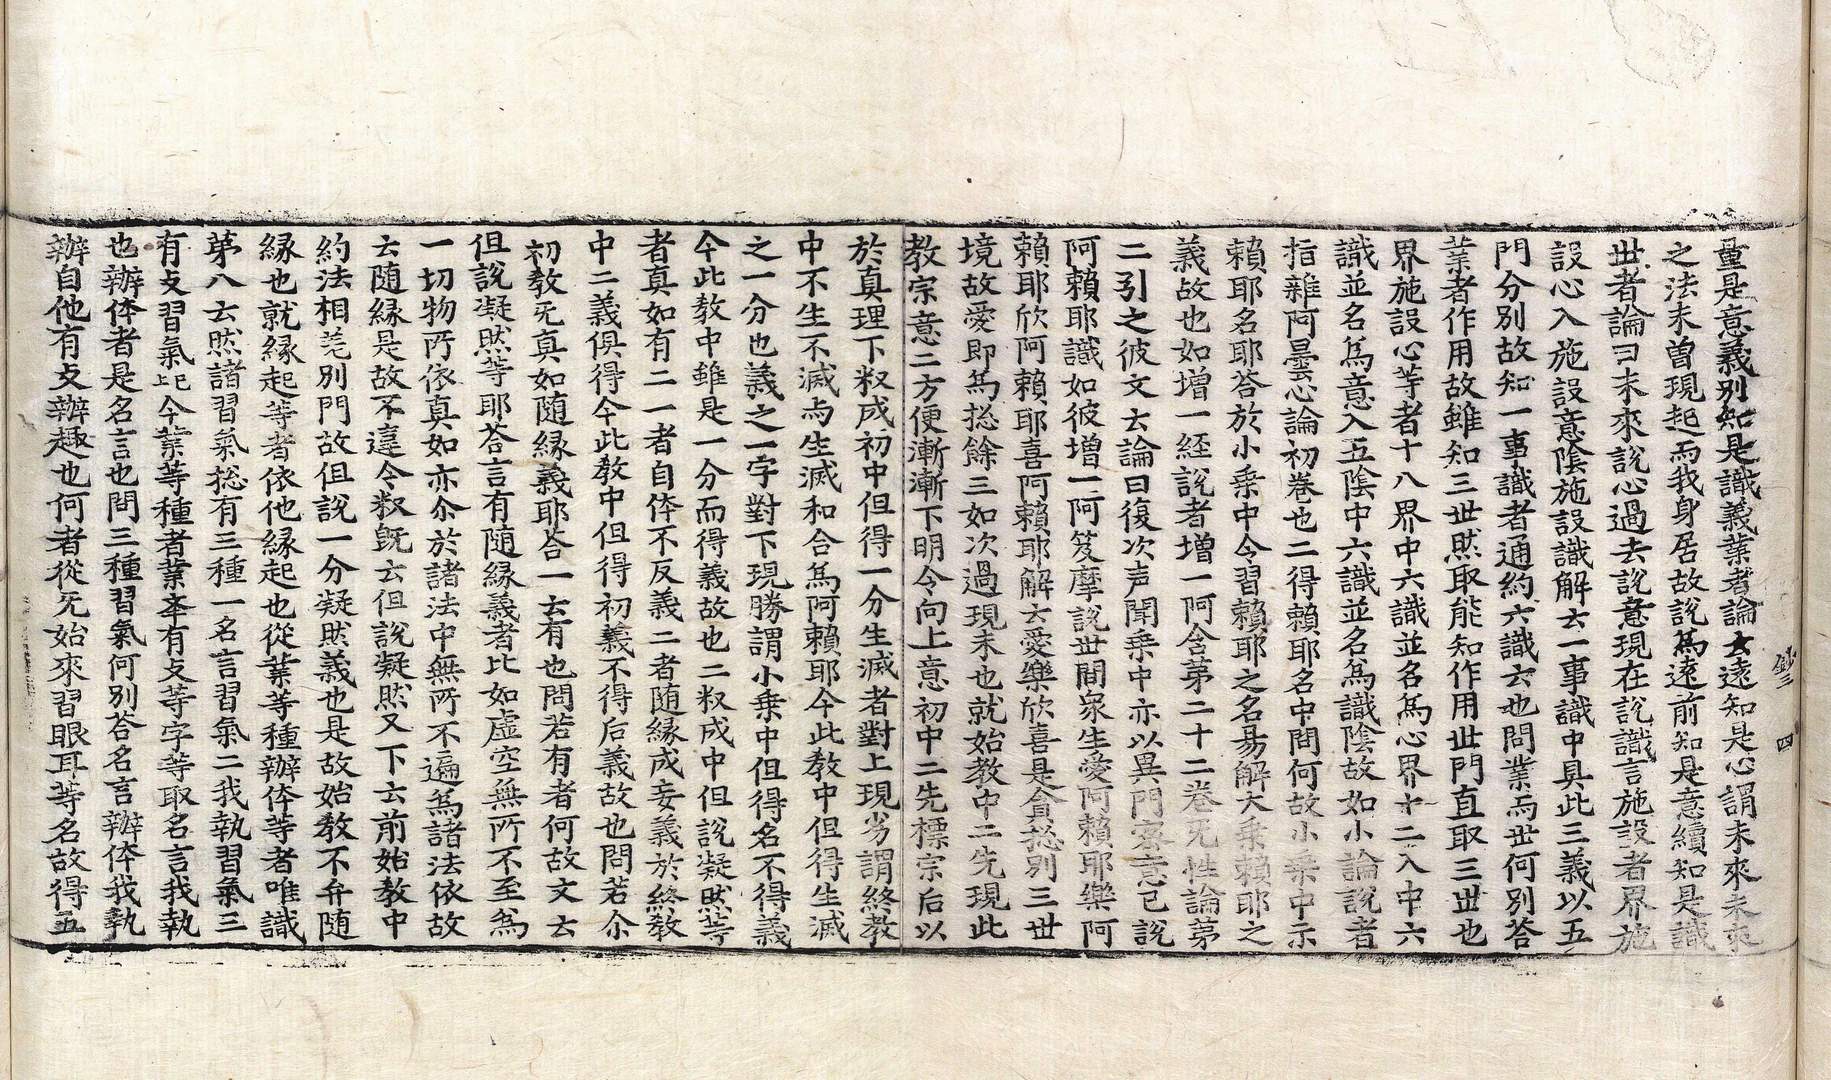 量是意義別知是識義業者論云遠知是心謂未來未來
之法未曽現起而我身居故說為遠前知是意續知是識
世者論曰未來說心過去說意現在說識言施設者界施
設心入施設意陰施設識解云一事識中具此三義以五
門分別故知一事識者通約六識云也問業而世何別荅
業者作用故雖知三世然取能知作用世門直取三世也
界施設心等者十八界中六識並名為心界十二入中六
識並名為意入五陰中六識並名為識陰故如小論說者
指雜阿曇心論初卷也二得賴耶名中問何故小乗中示
賴耶名耶荅於小乗中令習賴耶之名易解大乗賴耶之
義故也如增一経說者增一阿含苐二十二卷无性論苐
二引之彼文云論曰復次声聞乗中亦以異門密意已說
阿賴耶識如彼增一阿笈摩說世間衆生愛阿賴耶樂阿
賴耶欣阿賴耶喜阿賴耶解云愛樂欣喜是貪揔別三世
境故愛即為揔餘三如次過現未也就始教中二先現此
教宗意二方便漸漸下明令向上意初中二先標宗后以
於真理下釈成初中但得一分生滅者對上現劣謂終教
中不生不滅与生滅和合為阿賴耶今此教中但得生滅
之一分也義之一字對下現勝謂小乗中但得名不得義
今此教中雖是一分而得義故也二釈成中但說凝然等
者真如有二一者自体不反義二者随縁成妄義於終教
中二義俱得今此教中但得初義不得后義故也問若尒
初教无真如随縁義耶荅一云有也問若有者何故文云
但說凝然等耶荅言有随縁義者比如虛空無所不至為
一切物所依真如亦尒於諸法中無所不遍為諸法依故
云随縁是故不違令釈旣云但說凝然又下云前始教中
約法相差別門故但說一分凝然義也是故始教不弁随
縁也就縁起等者依他縁起也從業等種辦体等者唯識
苐八云然諸習氣揔有三種一名言習氣二我執習氣三
有攴習氣㐂今業等種者業䒭有攴等字等取名言我執
也辦体者是名言也問三種習氣何別荅名言辦体我執
辦自他有攴辦趣也何者從无始來習眼耳等名故得五
鈔三 四